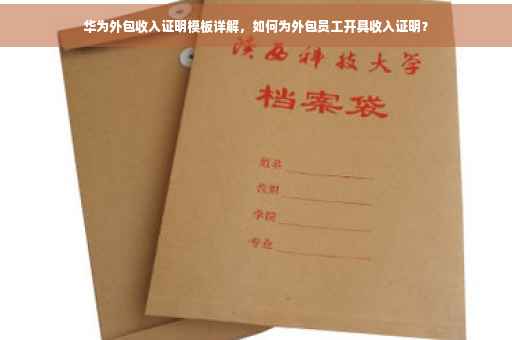 华为外包收入证明模板详解，如何为外包员工开具收入证明？
陕西科技大学
档案袋
姓名
学院
专业